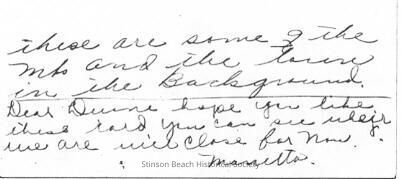 these are some of the
Mts and the town
in the Background.
Dear hope you like
these card you can see
we are will close for now.
Stinson Beach Historical Society